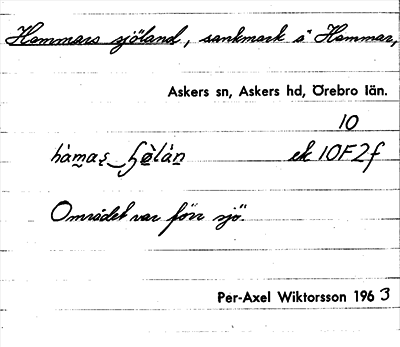 Hammars sjöland, sankmark å Hammar,
Askers sn, Askers hd, Örebro län.
10
ek 10F2f
Området var förr sjö.
Per-Axel Wiktorsson 1963